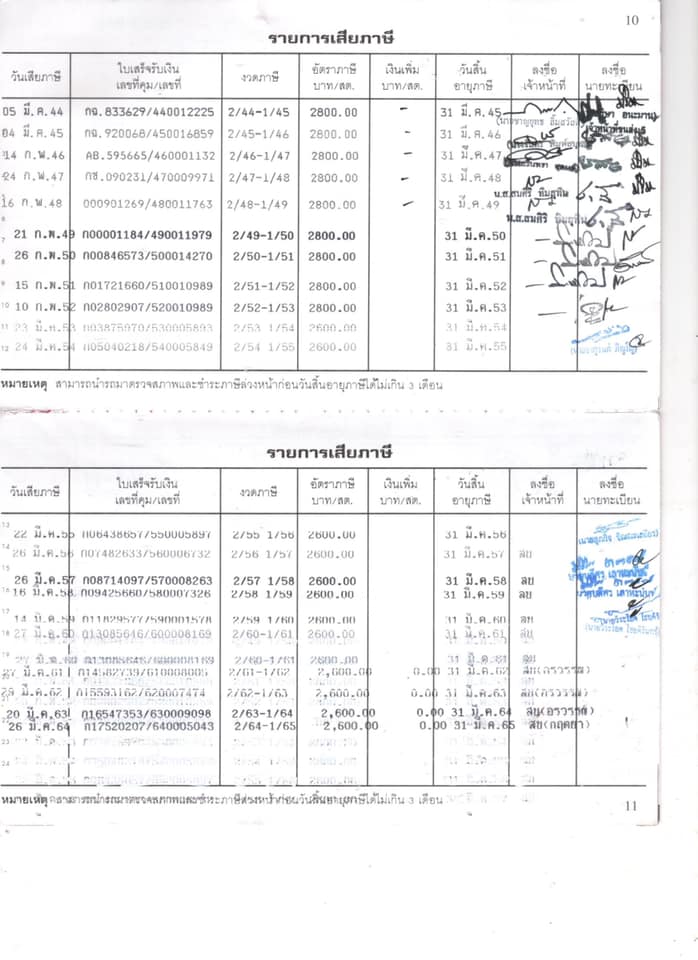 10
รายการเสียภาษี
วันเสียภาษี ใบเสร็จรับเงิน เลขที่คุม/เลขที่ งวดภาษี อัตราภาษี บาท/สต. เงินเพิ่ม บาท/สต. วันสิ้น อายุภาษี ลงชื่อ เจ้าหน้าที่ ลงชื่อ นายทะเบียน
05 มี.ค.44 กฉ.833629/440012225 2/44-1/45 2800.00 - 31 มี.ค.45
04 มี.ค.45 กฉ.920068/450016859 2/45-1/46 2800.00 - 31 มี.ค.46
14 ก.พ.46 AB.595665/460001132 2/46-1/47 2800.00 - 31 มี.ค.47
24 ก.พ.47 กช.090231/470009971 2/47-1/48 2800.00 - 31 มี.ค.48
16 ก.พ.48 000901269/480011763 2/48-1/49 2800.00 - 31 มี.ค.49
7 21 ก.พ.49 ก00001184/490011979 2/49-1/50 2800.00 31 มี.ค.50
8 26 ก.พ.50 ก00846573/500014270 2/50-1/51 2800.00 31 มี.ค.51
9 15 ก.พ.51 ก01721660/510010989 2/51-1/52 2800.00 31 มี.ค.52
10 10 ก.พ.52 ก02802907/520010989 2/52-1/53 2800.00 31 มี.ค.53
11 23 มี.ค.53 ก03875970/530005893 2/53 1/54 2600.00 31 มี.ค.54
12 24 มี.ค.54 ก05040218/540005849 2/54 1/55 2600.00 31 มี.ค.55
หมายเหตุ สามารถนำรถมาตรวจสภาพและชำระภาษีล่วงหน้าก่อนวันสิ้นอายุภาษีได้ไม่เกิน 3 เดือน
รายการเสียภาษี
วันเสียภาษี ใบเสร็จรับเงิน เลขที่คุม/เลขที่ งวดภาษี อัตราภาษี บาท/สต. เงินเพิ่ม บาท/สต. วันสิ้น อายุภาษี ลงชื่อ เจ้าหน้าที่ ลงชื่อ นายทะเบียน
13 22 มี.ค.55 ก06438657/550005897 2/55 1/56 2600.00 31 มี.ค.56
14 26 มี.ค.56 ก07482633/560006732 2/56 1/57 2600.00 31 มี.ค.57 ลย
15 26 มี.ค.57 ก08714097/570008263 2/57 1/58 2600.00 31 มี.ค.58 ลย
16 16 มี.ค.58 ก09425660/580007326 2/58 1/59 2600.00 31 มี.ค.59 ลย
17 14 มี.ค.59 ก11829577/590001578 2/59 1/60 2600.00 31 มี.ค.60 ลย
18 27 มี.ค.60 ก13085646/600008169 2/60-1/61 2600.00 31 มี.ค.61 ลย
27 มี.ค.60 ก13085646/600008169 2/60-1/61 2600.00 31 มี.ค.61 ลย
27 มี.ค.61 ก14582739/610008005 2/61-1/62 2,600.00 0.00 31 มี.ค.62
25 มี.ค.62 ก15593162/620007474 2/62-1/63 2,600.00 0.00 31 มี.ค.63
20 มี.ค.63 ก16547353/630009098 2/63-1/64 2,600.00 0.00 31 มี.ค.64 ลย(อรวรรณ)
26 มี.ค.64 ก17520207/640005043 2/64-1/65 2,600.00 0.00 31 มี.ค.65 ลย(กฤตยา)
23
24
หมายเหตุ สามารถนำรถมาตรวจสภาพและชำระภาษีล่วงหน้าก่อนวันสิ้นอายุภาษีได้ไม่เกิน 3 เดือน
11